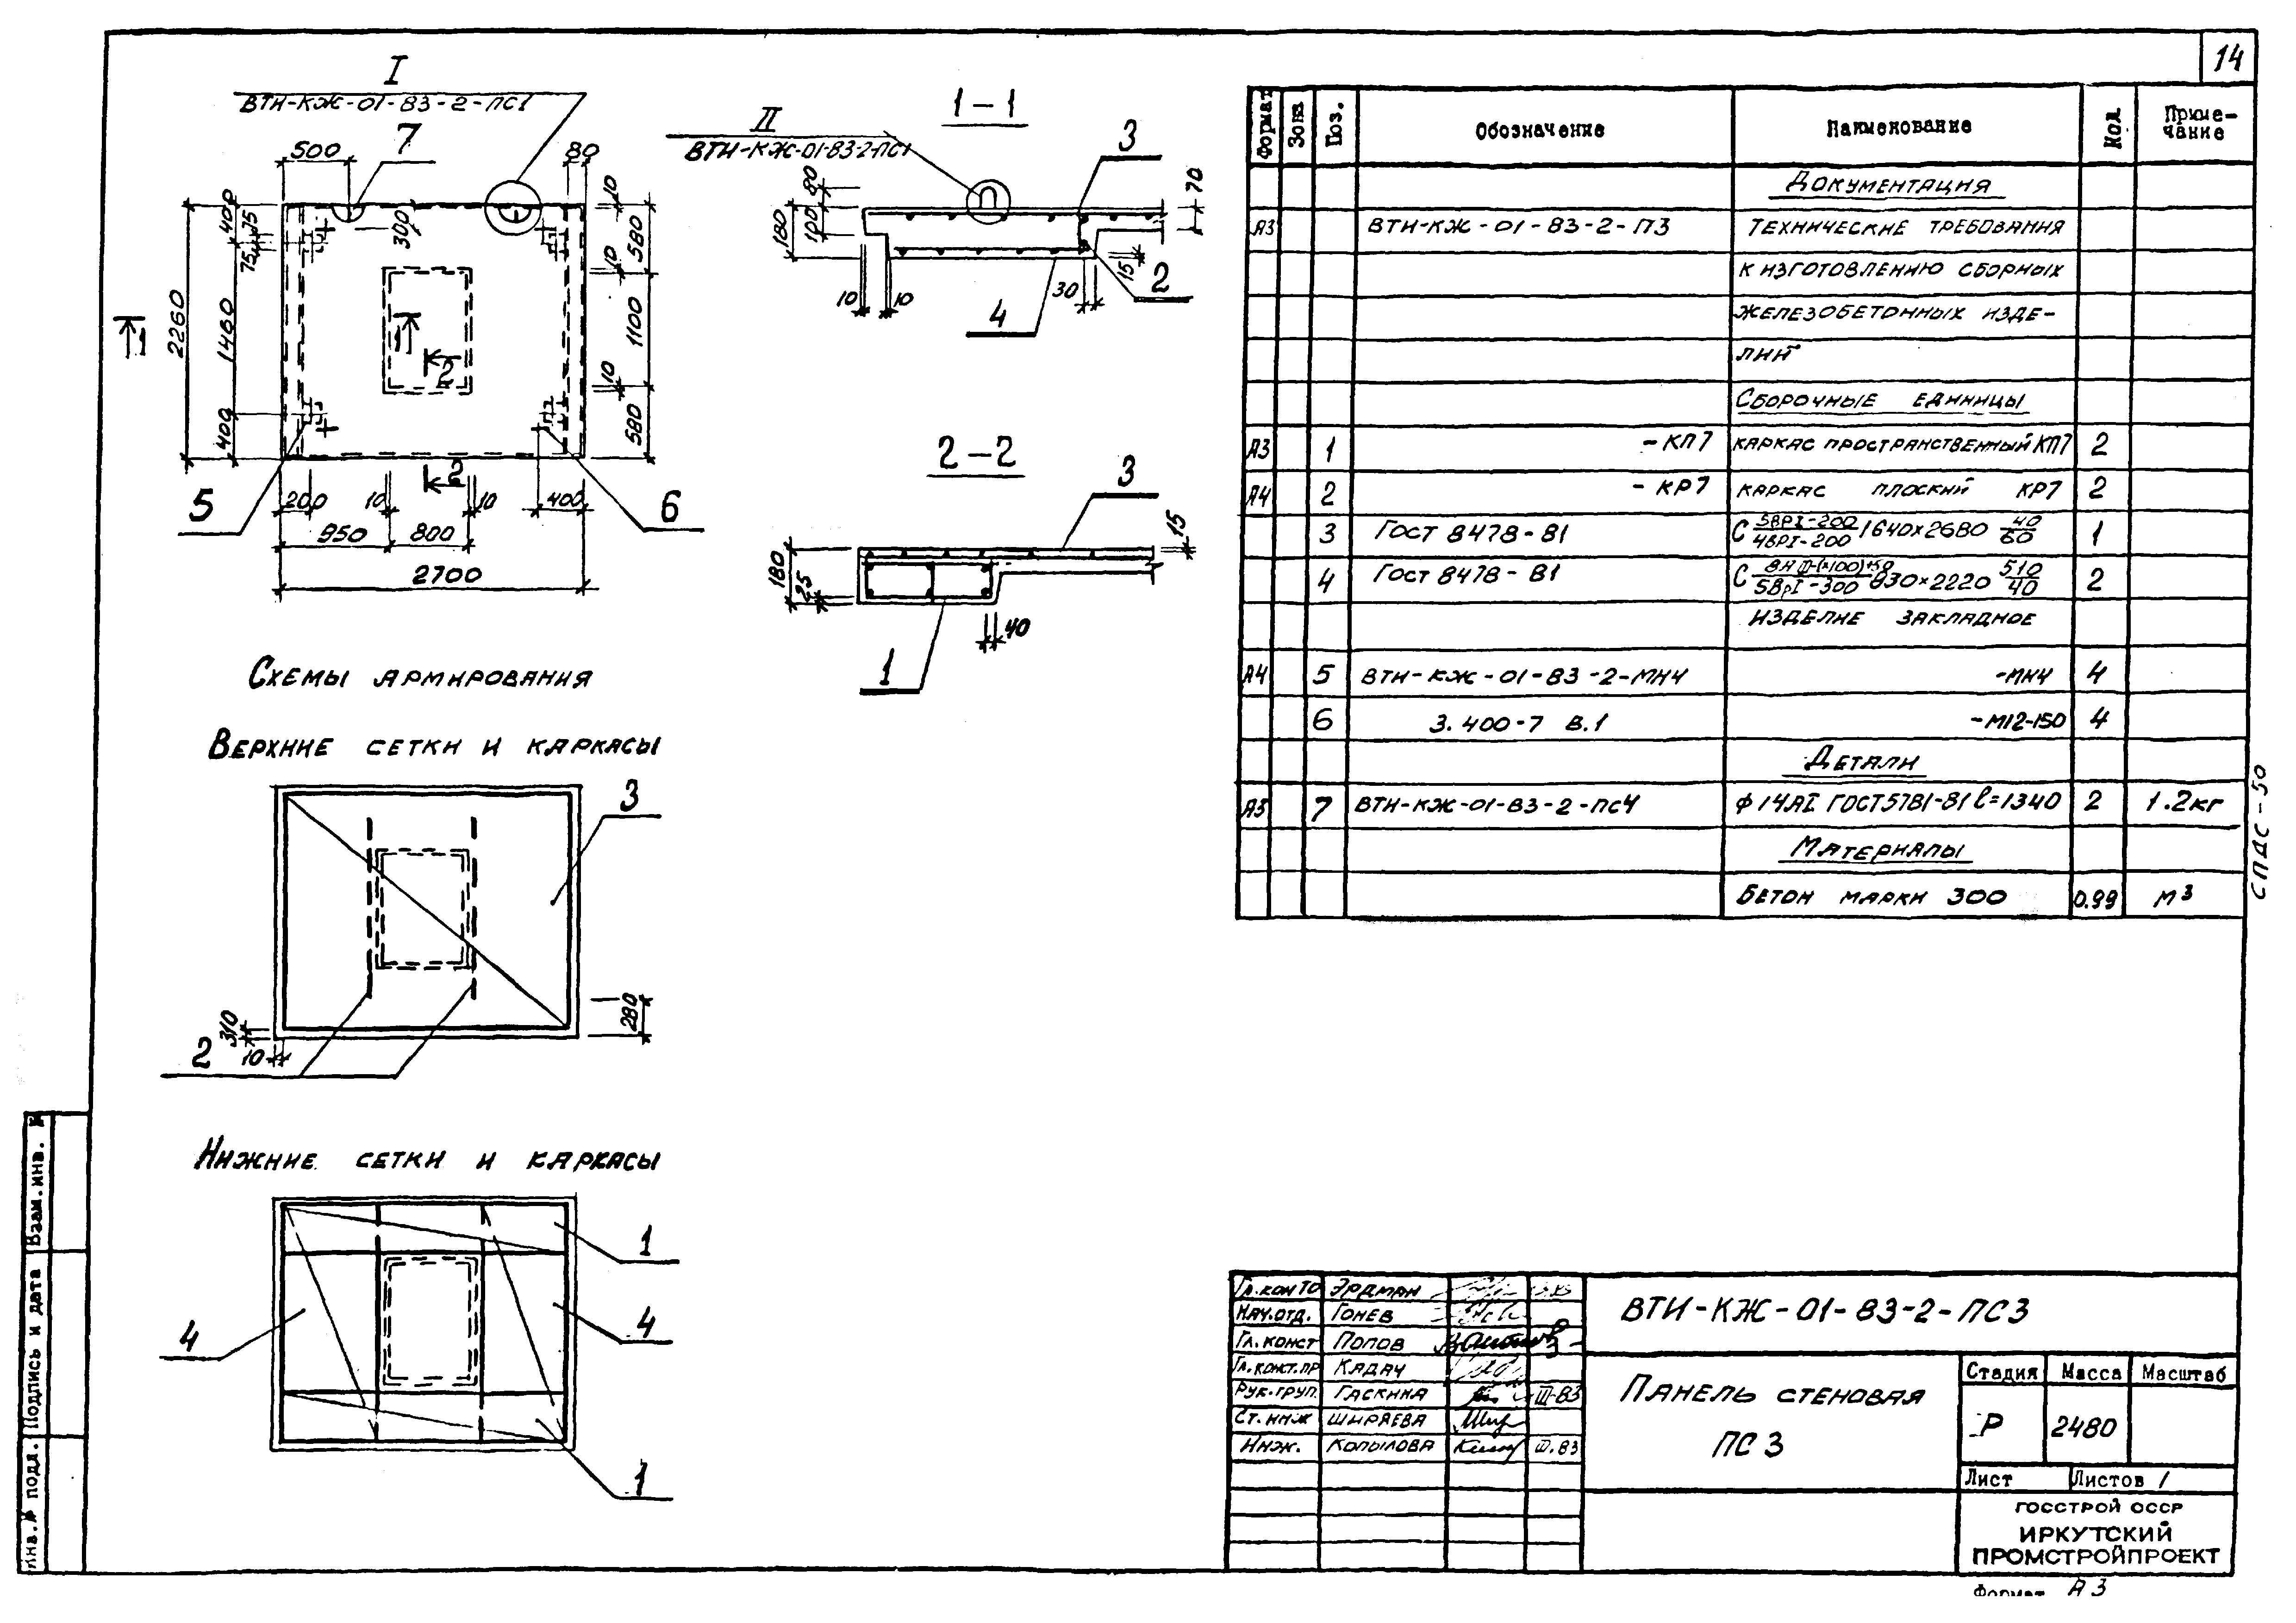 14
I
ВТИ-КЖ-01-83-2-ПС1
7
500
80
10
400
75
300
580
75
10
2260
1460
1100
1
1
2
10
400
580
2
5
200
10
10
400
6
950
800
2700
1-1
II
ВТИ-КЖ-01-83-2-ПС1
3
80
70
180
100
15
2
10
10
30
4
2-2
3
15
180
25
40
1
Схемы армирования
Верхние сетки и каркасы
3
310
280
10
2
Нижние сетки и каркасы
1
4
4
1
Формат Зона Поз. Обозначение Наименование Кол. Приме-
чание
Документация
А3 ВТИ-КЖ-01-83-2-ПЗ Технические требования
к изготовлению сборных
железобетонных изде-
лий
Сборочные единицы
А3 1 -КП7 каркас пространственный КП7 2
А4 2 -КР7 каркас плоский КР7 2
3 ГОСТ 8478-81 С 5ВРI-200/4ВРI-200 1640×2680 40/60 1
4 ГОСТ 8478-81 С 830×2220 510/40 2
изделие закладное
А4 5 ВТИ-КЖ-01-83-2-МН4 -МН4 4
6 3.400-7 В.1 -М12-150 4
Детали
А3 7 ВТИ-КЖ-01-83-2-ПС4 ф14АI ГОСТ5781-81 ℓ=1340 2 1.2кг
Материалы
Бетон марки 300 0.99 м³
СПДС-50
Взам.инв. №
Подпись и дата
Инв.№ подл.
Гл.кон ТО Эрдман
Нач.отд. Гонев
Гл.конст Попов
Гл.конст.пр Кадач
Рук.груп. Гаскина III-83
Ст.инж Ширяева
Инж. Копылова III.83
ВТИ-КЖ-01-83-2-ПС3
Панель стеновая
ПС 3
Стадия Масса Масштаб
Р 2480
Лист Листов 1
ГОССТРОЙ СССР
ИРКУТСКИЙ
ПРОМСТРОЙПРОЕКТ
Формат А3